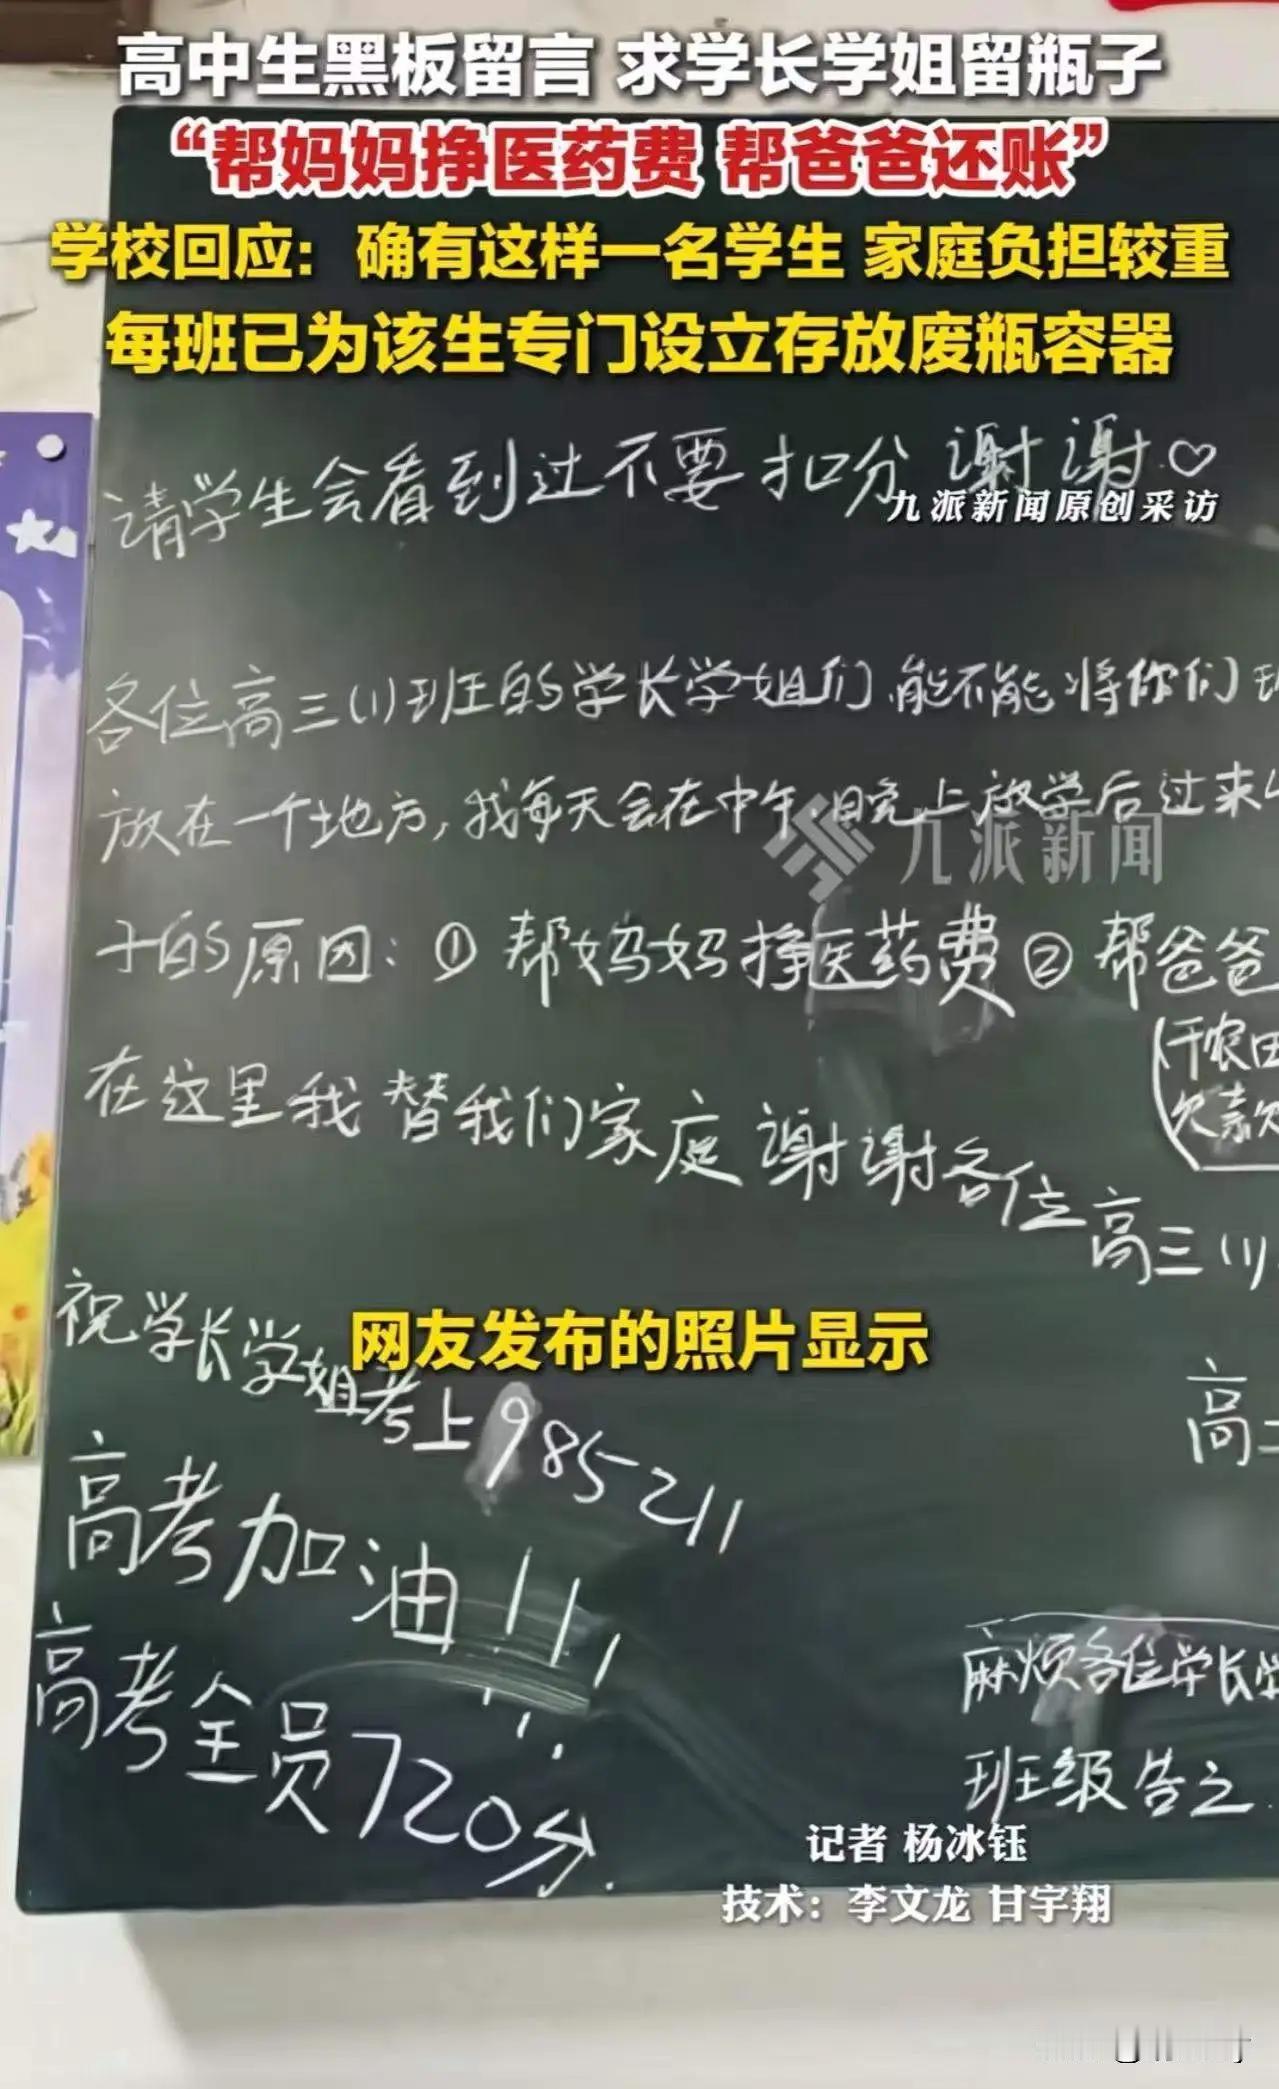 高中生黑板留言 求学长学姐留瓶子
“帮妈妈挣医药费 帮爸爸还账”
学校回应：确有这样一名学生 家庭负担较重
每班已为该生专门设立存放废瓶容器
请学生会看到过不要扣分 谢谢♡
九派新闻原创采访
各位高三(1)班的学长学姐们,能不能将你们班
放在一个地方,我每天会在中午,晚上放学后过来
九派新闻
子的原因:①帮妈妈挣医药费②帮爸爸
(干农田
欠款
在这里我替我们家庭谢谢各位高三(1)
祝学长学姐考上985 211
网友发布的照片显示
高
高考加油!!!
高考全员720分.
麻烦各位学长学
班级告之.
记者 杨冰钰
技术：李文龙 甘宇翔